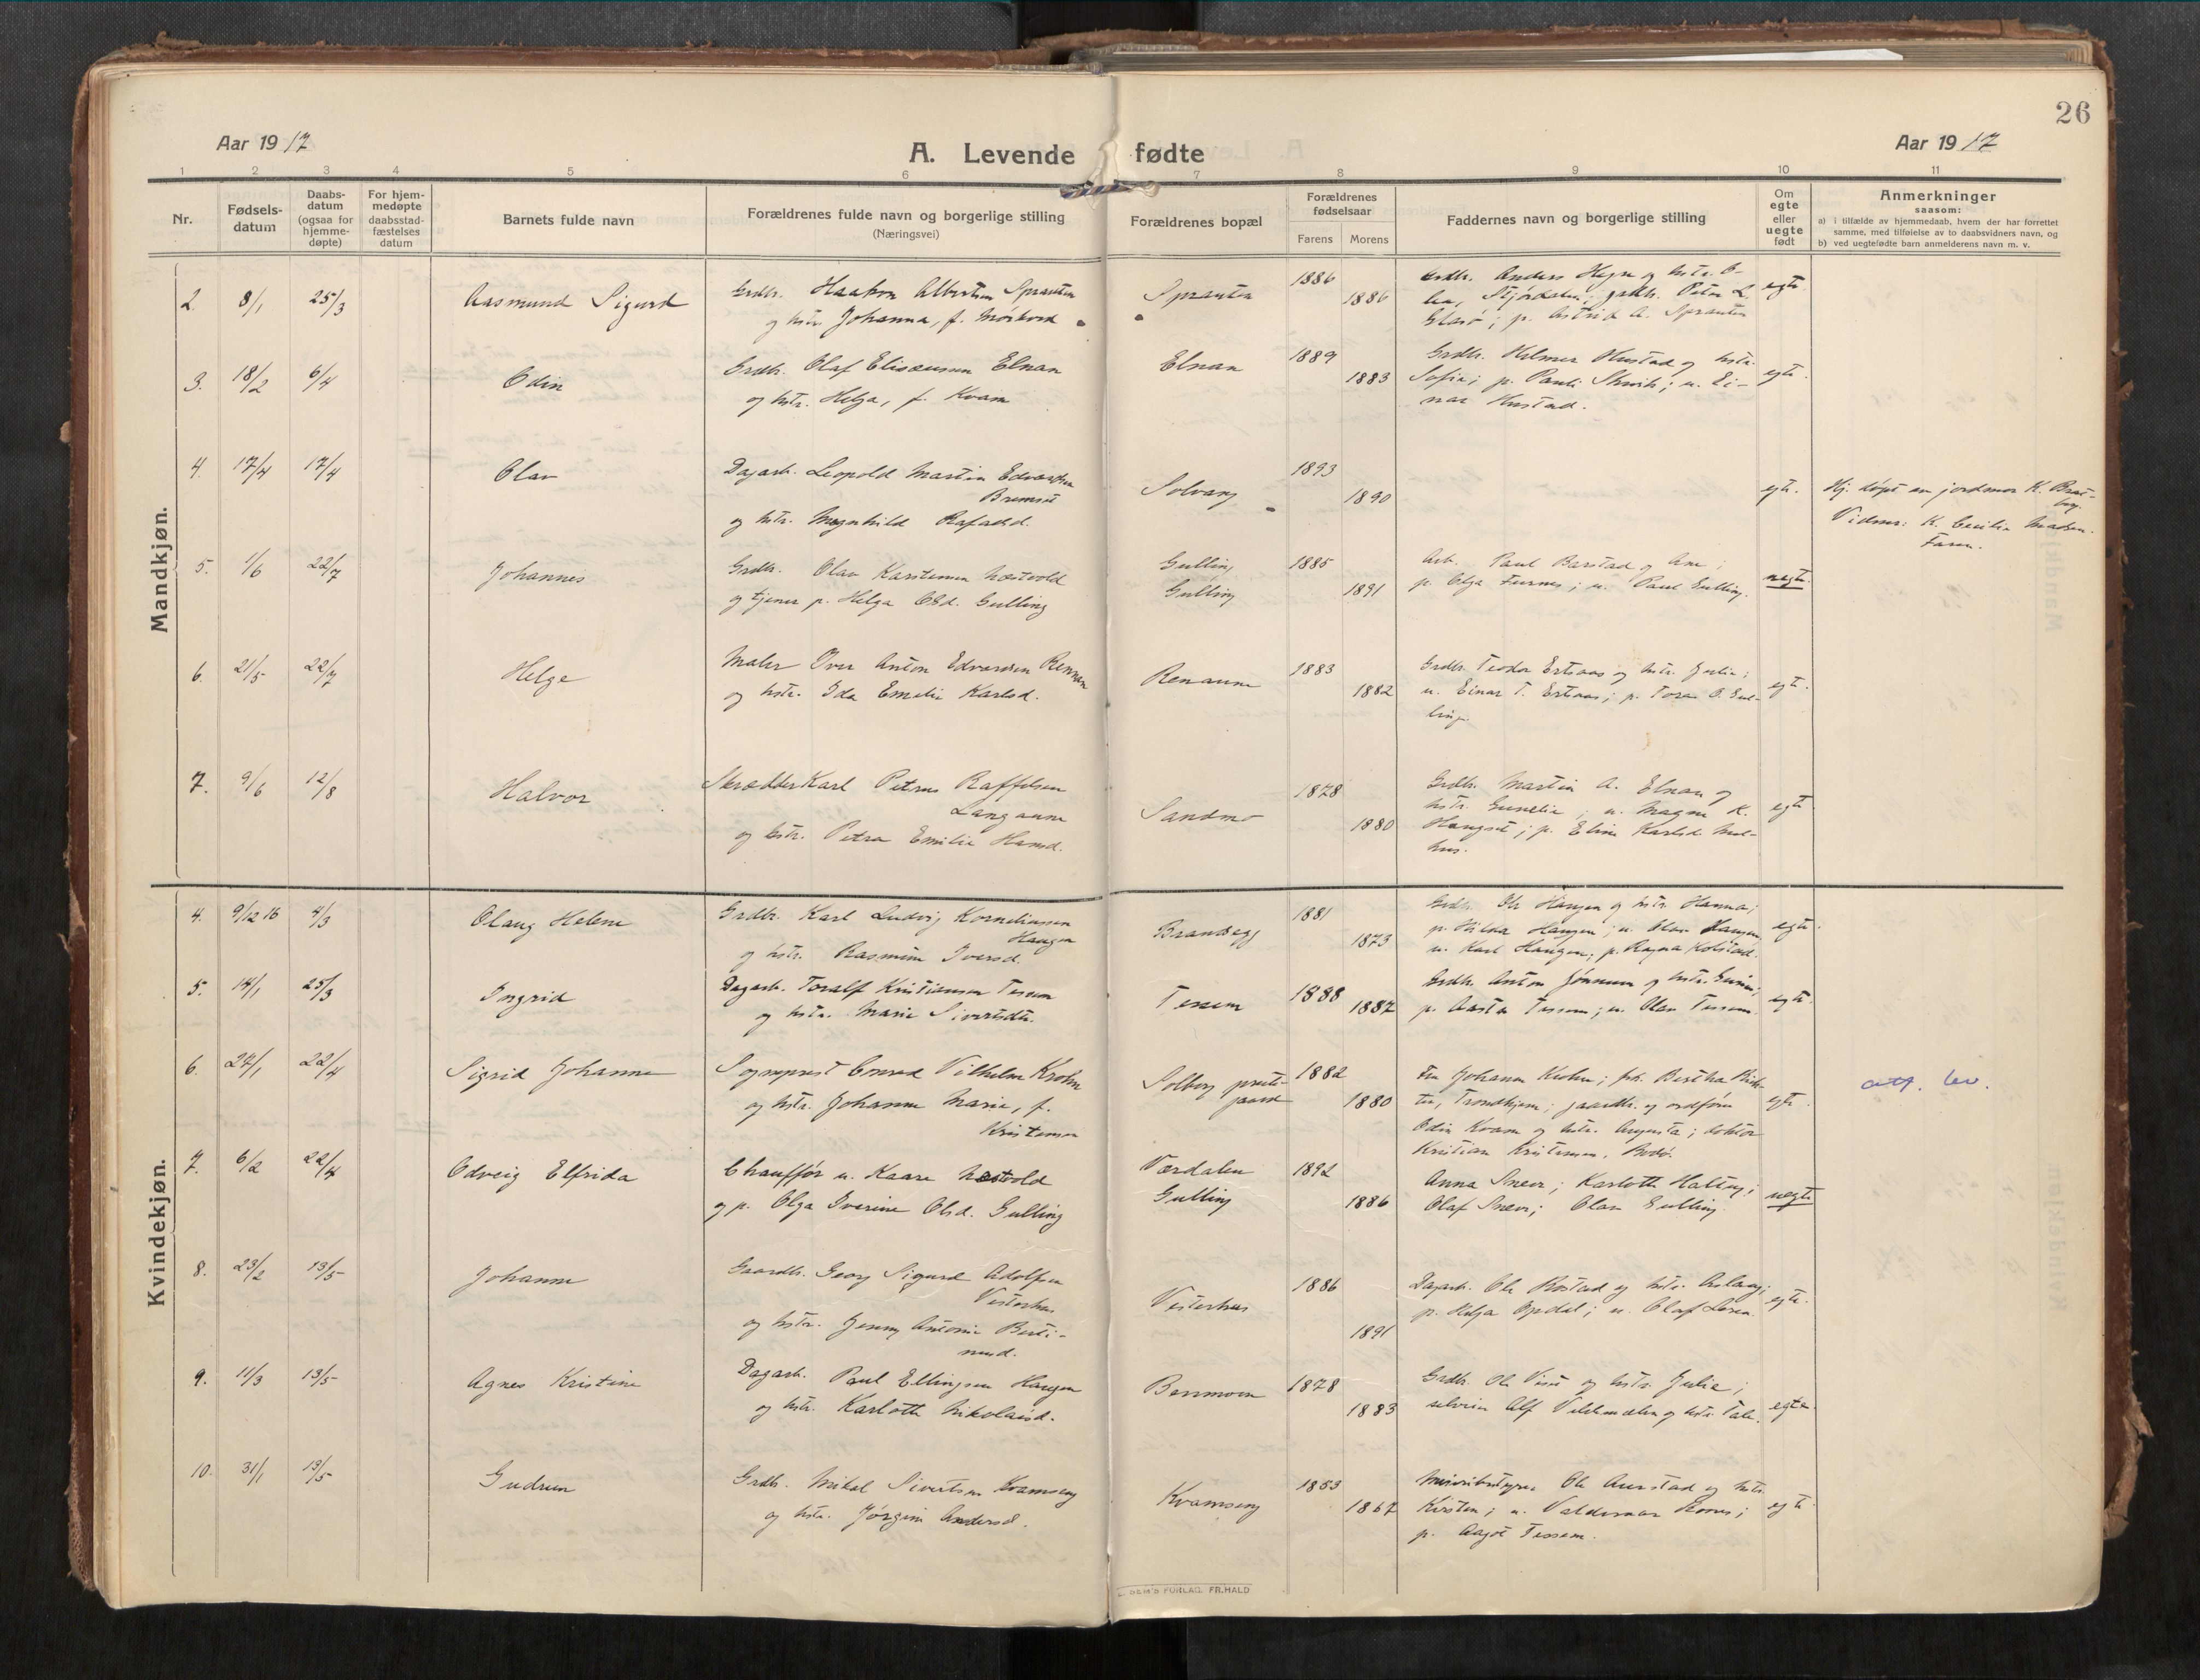 26
Aar 1917
A. Levende fødte
Aar 1917
1 2 3 4 5 6 7 8 9 10 11
Nr.
Fødsels-
datum
Daabs-
datum
(ogsaa for
hjemme-
døpte)
For hjem-
medøpte
daabsstad-
fæstelses
datum
Barnets fulde navn
Forældrenes fulde navn og borgerlige stilling
(Næringsvei)
Forældrenes bopæl
Forældrenes
fødselsaar
Farens Morens
Faddernes navn og borgerlige stilling
Om
egte
eller
uegte
født
Anmerkninger
saasom:
a) i tilfælde av hjemmedaab, hvem der har forrettet
samme, med tilføielse av to daabsvidners navn, og
b) ved uegtefødte barn anmelderens navn m. v.
Mandkjøn.
2. 8/1 25/3 Aasmund Sigurd
Grdbr. Haakon Albertsen Sprauten
og hstr. Johanna, f. Mørkved
Sprauten
1886
1886
Grdbr. Anders Hegre og hstr.
Stjørdalen; gaardbr. Peter L.
Glasø; p. Astrid A. Sprauten
egte
3. 18/2 6/4 Odin
Grdbr. Olaf Eliseussen Elnan
og hstr. Helga, f. Kvam
Elnan
1889
1883
Grdbr. Hilmer Hustad og hstr.
Sofie; p. Pauli; u. Ei-
nar Hustad.
egte.
4. 17/4 17/4 Olav
Dagarb. Leopold Martin Edvardsen
Bremset
og hstr. Magnhild Rafaelsd.
Solvang
1893
1890
egte.
Hj. døpt av jordmor K. Brat-
berg.
Vidner: K. Cecilia Madsen.
Faren.
5. 1/6 22/7 Johannes
Grdbr. Olav Karstensen Næstvold
og tjener p. Helga Olsd. Gulling
Gulling
Gulling
1885
1891
Arb. Paul Barstad og Ane;
p. Olga Furnes; u. Paul Gulling.
uegte.
6. 21/5 22/7 Helge
Maler Iver Anton Edvardsen Rennan
og hstr. Ida Emelie Karlsd.
Renaune
1883
1882
Grdbr. Teodor Ertsaas og hstr. Julie;
u. Einar T. Ertsaas; p. Tora O. Gul-
ling.
egte.
7. 9/6 12/8 Halvor
Skrædder Karl Petrus Raffelsen
Langaune
og hstr. Petra Emilie Hansd.
Sandmo
1878
1880
Grdbr. Martin A. Elnan og
hstr. Gunelie; u. Magne K.
Haugset; p. Eline Karlsd. Mel-
hus.
egte
Kvindekjøn.
4. 9/12 16 4/3 Olaug Helene
Grdbr. Karl Ludvig Korneliussen
Haugen
og hstr. Rasmine Iversd.
Brandsegg
1881
1873
Grdbr. Ole Haugen og hstr. Hanna;
p. Hilda Haugen; u. Olav Haugen,
u. Karl Haugen; p. Ragna Kolstad.
egte.
5. 14/1 25/3 Ingrid
Dagarb. Toralf Kristiansen Tessem
og hstr. Marie Sivertsdtr.
Tessem
1888
1887
Grdbr. Anton Jønnum og hstr.
p. Aasta Tessem; u. Olav Tessem.
egte.
6. 27/1 22/4 Sigrid Johanne
Sogneprest Conrad Vilhelm Krohn
og hstr. Johanne Marie, f.
Kristensen
Solberg preste-
gaard
1882
1880
Fru Johanne Krohn; frk. Bertha Rich-
ter, Trondhjem; gaardbr. og ordfører
Odin Kvam og hstr. Augusta; doktor
Kristian Kristensen, Bodø.
egte.
att. lev.
7. 6/2 22/4 Odveig Elfrida
Chauffør u. Kaare Næstvold
og p. Olga Iverine Olsd. Gulling
Værdalen
Gulling
1892
1886
Anna Sneve; Karlotte Halseng;
Olaf Sneve; Olav Gulling.
uegte
8. 23/2 13/5 Johanne
Gaardbr. Georg Sigurd Adolfsen
Vesterhus
og hstr. Jenny Antonie Berti-
nusd.
Vesterhus
1886
1891
Dagarb. Ole Rostad og hstr. Aslaug;
p. Helga Opdal; u. Olaf
egte.
9. 11/3 13/5 Agnes Kristine
Dagarb. Paul Ellingsen Haugen
og hstr. Karlotte Nikolaisd.
Bersmoen
1878
1883
Grdbr. Ole Viset og hstr. Julie;
selveier Alf og hstr.
egte.
10. 31/1 13/5 Gudrun
Grdbr. Mikal Sivertsen Kvamseng
og hstr. Jørgine Andersd.
Kvamseng
1853
1867
Meieribestyrer Ole Aurstad og hstr.
Kirsten; u. Valdemar
p. Aagot Tessem.
egte
SEM'S FORLAG. FR.HALD